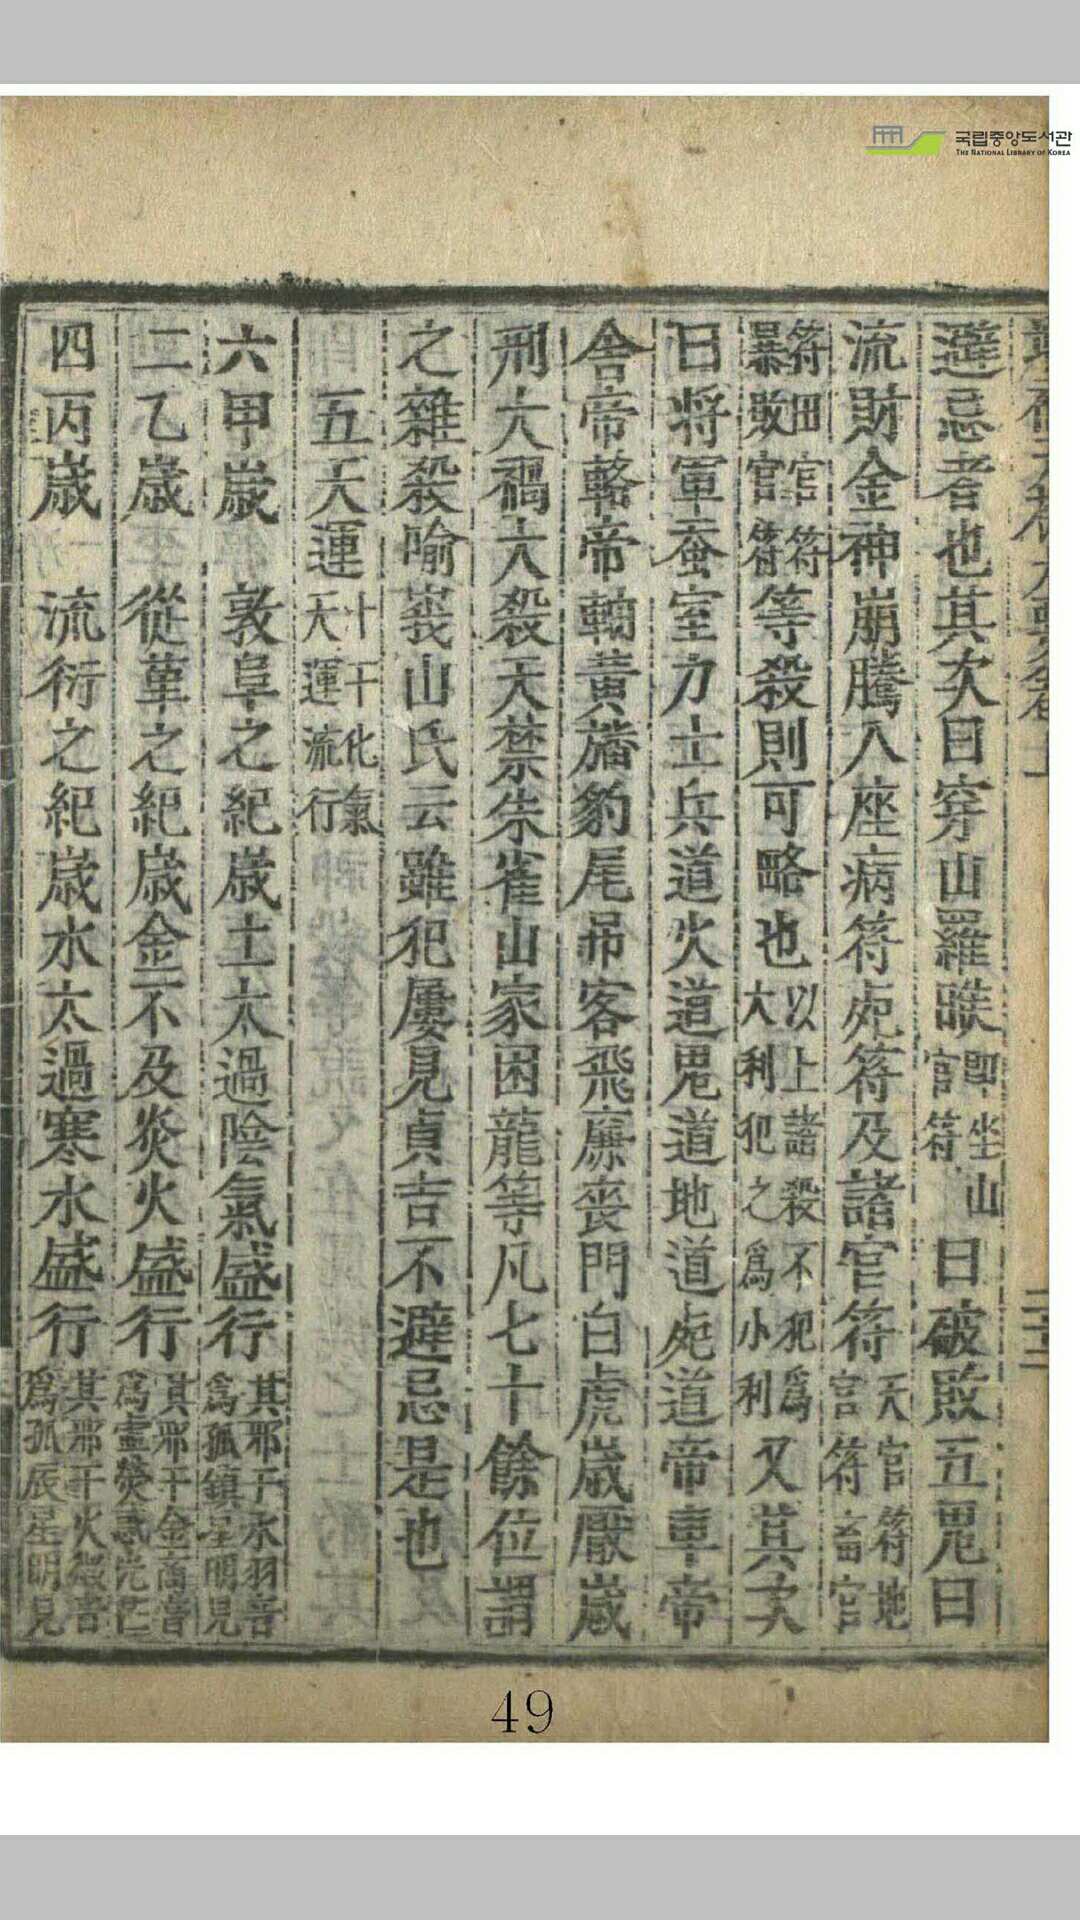 국립중앙도서관
THE NATIONAL LIBRARY OF KOREA
避忌者也其次曰穿山羅睺即坐山官符曰破敗五鬼曰
流財金神崩騰入座病符死符及諸官符天官符地官符畜官
符田官符暴敗官符等殺則可略也以上諸殺不犯爲大利犯之爲小利又其次
曰將軍蚕室力士兵道火道鬼道地道死道帝車帝
舍帝輅帝輔黃旛豹尾吊客飛廉喪門白虎歲厭歲
刑大禍大殺天禁朱雀山家困龍等凡七十餘位謂
之雜殺喻義山氏云雖犯屢見貞吉不避忌是也
五天運十干化氣天運流行
六甲歲 敦阜之紀歲土太過陰氣盛行其邪干水羽音爲孤鎮星明見
二乙歲 從革之紀歲金不及炎火盛行其邪干金商音爲虛熒惑光芒
四丙歲 流衍之紀歲水太過寒水盛行其邪干火徵音爲孤辰星明見
49